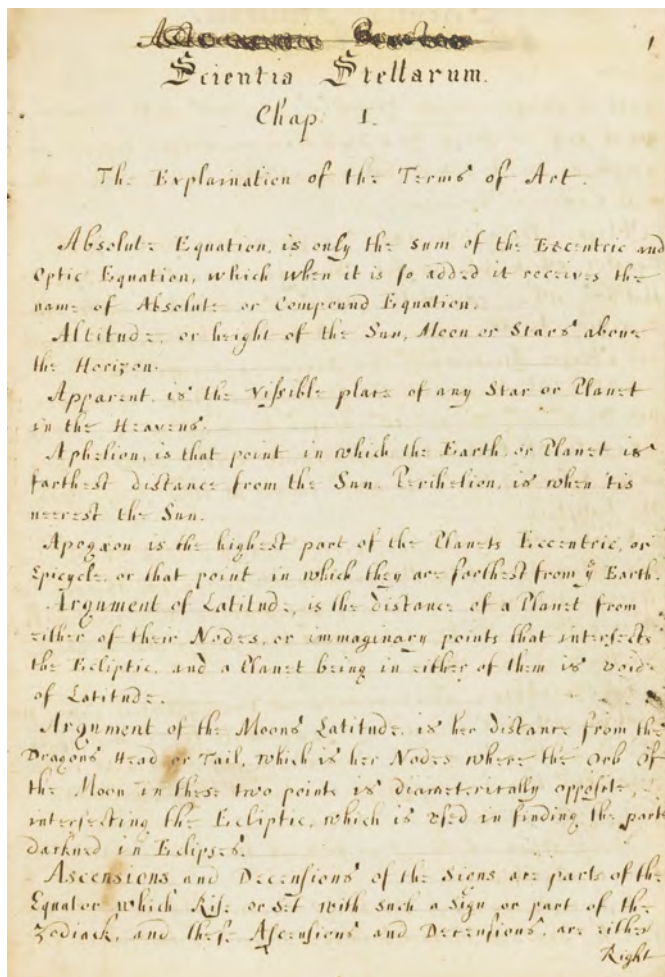 1
Scientia Stellarum.
Chap I.
The Explaination of the Terms of Art.
Absolute Equation, is only the sum of the Eccentric and
Optic Equation, which when it is so added it receives the
name of Absolute or Compound Equation.
Altitude, or height of the Sun, Moon or Stars above
the Horizon.
Apparent, is the Vissible place of any Star or Planet
in the Heavens.
Aphelion, is that point in which the Earth, or Planet is
farthest distance from the Sun. Perihelion, is when 'tis
nerest the Sun.
Apogæon is the highest part of the Planets Eccentric, or
Epicycle, or that point in which they are farthest from ye Earth.
Argument of Latitude, is the distance of a Planet from
either of their Nodes, or immaginary points that intersects
the Ecliptic, and a Planet being in either of them is voide
of Latitude.
Argument of the Moons Latitude, is her distance from the
Dragons Head or Tail, which is her Nodes where the Orb of
the Moon in these two points is diametrically opposite,
intersecting the Ecliptic, which is used in finding the parts
darkned in Eclipses.
Ascensions and Decensions of the Signs are parts of the
Equator which Rise or Set with such a Sign or part of the
Zodiack, and these Ascensions and Decensions, are either
Right